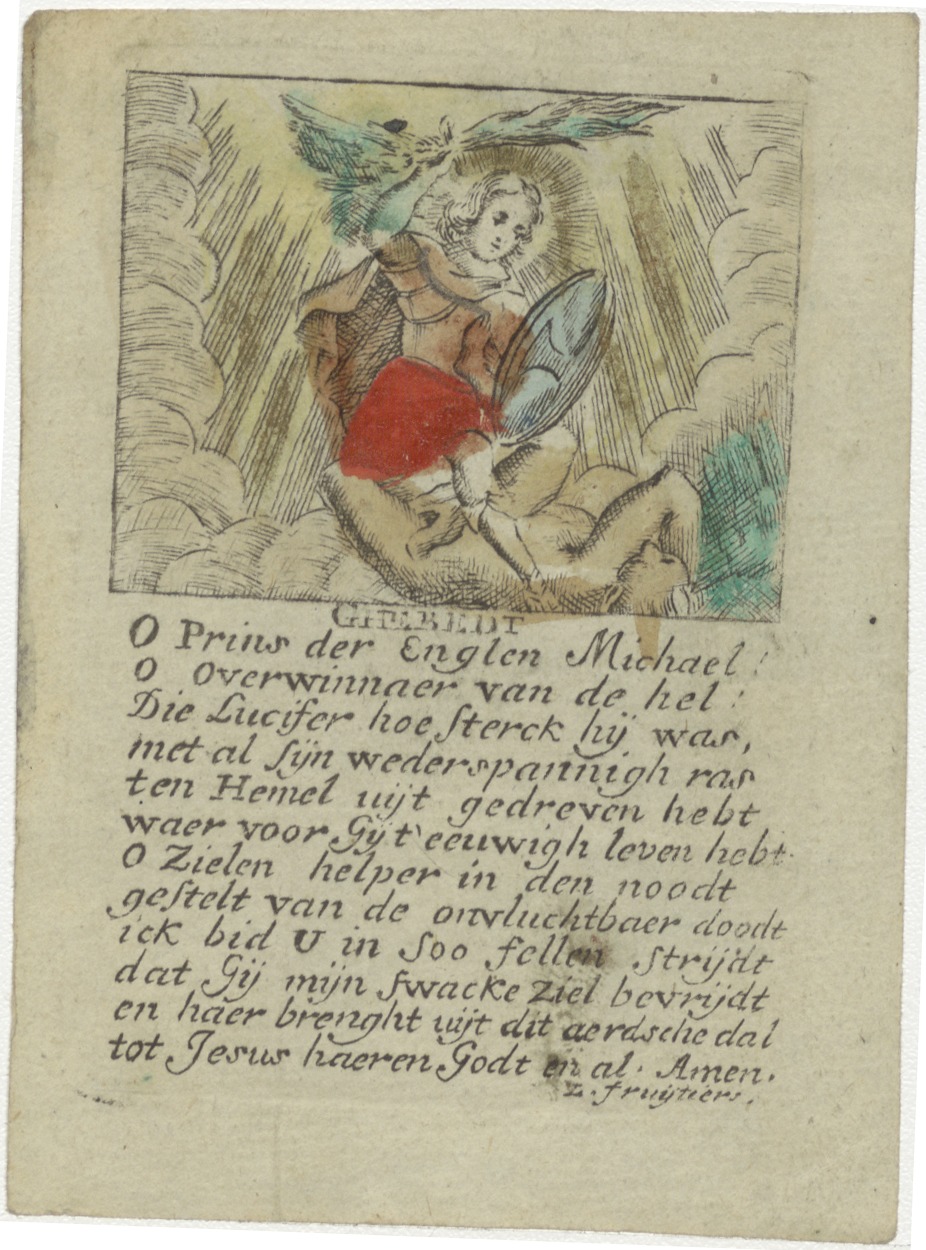 GHEBEDT
O Prins der Englen Michael!
O Overwinnaer van de hel!
Die Lucifer hoe ſterck hij was,
met al ſijn wederspannigh ras
ten Hemel uijt gedreven hebt
waer voor Gij t'eeuwigh leven hebt.
O Zielen helper in den noodt
geſtelt van de onvluchtbaer doodt
ick bid U in ſoo fellen ſtrijdt
dat Gij mijn ſwacke Ziel bevrijdt
en haer brenght uijt dit aerdsche dal
tot Jesus haeren Godt en al. Amen.
L. fruijtiers.